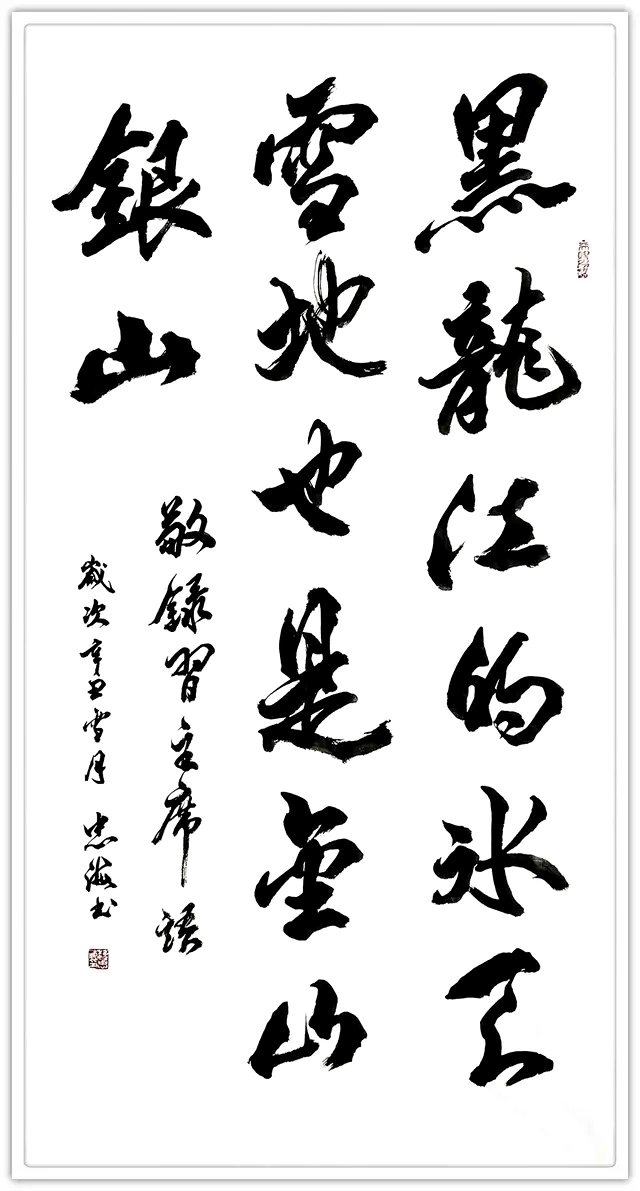 黑龍江的冰天
雪地也是金山
銀山
敬錄習主席語
歲次辛丑雪月 忠海書